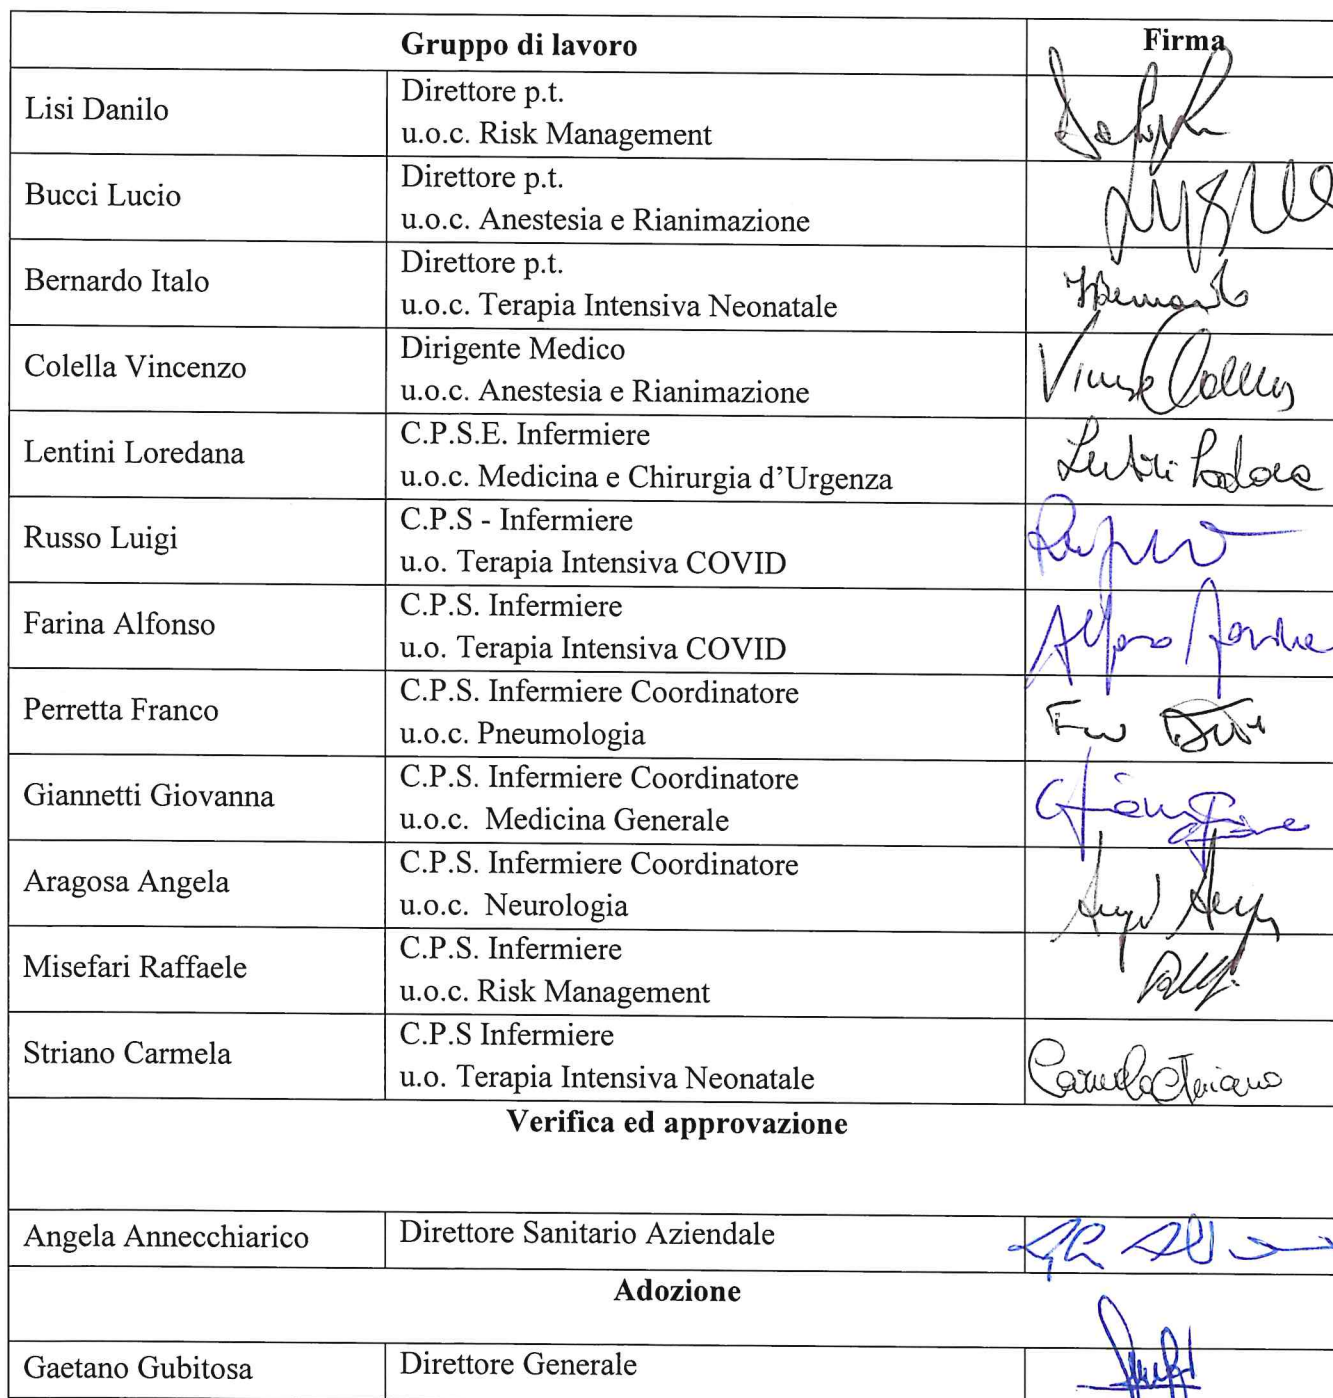 Gruppo di lavoro Firma
Lisi Danilo
Direttore p.t.
u.o.c. Risk Management
Bucci Lucio
Direttore p.t.
u.o.c. Anestesia e Rianimazione
Bernardo Italo
Direttore p.t.
u.o.c. Terapia Intensiva Neonatale
Colella Vincenzo
Dirigente Medico
u.o.c. Anestesia e Rianimazione
Lentini Loredana
C.P.S.E. Infermiere
u.o.c. Medicina e Chirurgia d'Urgenza
Russo Luigi
C.P.S - Infermiere
u.o. Terapia Intensiva COVID
Farina Alfonso
C.P.S. Infermiere
u.o. Terapia Intensiva COVID
Alfonso Farina
Perretta Franco
C.P.S. Infermiere Coordinatore
u.o.c. Pneumologia
Giannetti Giovanna
C.P.S. Infermiere Coordinatore
u.o.c. Medicina Generale
Aragosa Angela
C.P.S. Infermiere Coordinatore
u.o.c. Neurologia
Misefari Raffaele
C.P.S. Infermiere
u.o.c. Risk Management
Striano Carmela
C.P.S Infermiere
u.o. Terapia Intensiva Neonatale
Carmela Striano
Verifica ed approvazione
Angela Annecchiarico
Direttore Sanitario Aziendale
Adozione
Gaetano Gubitosa
Direttore Generale